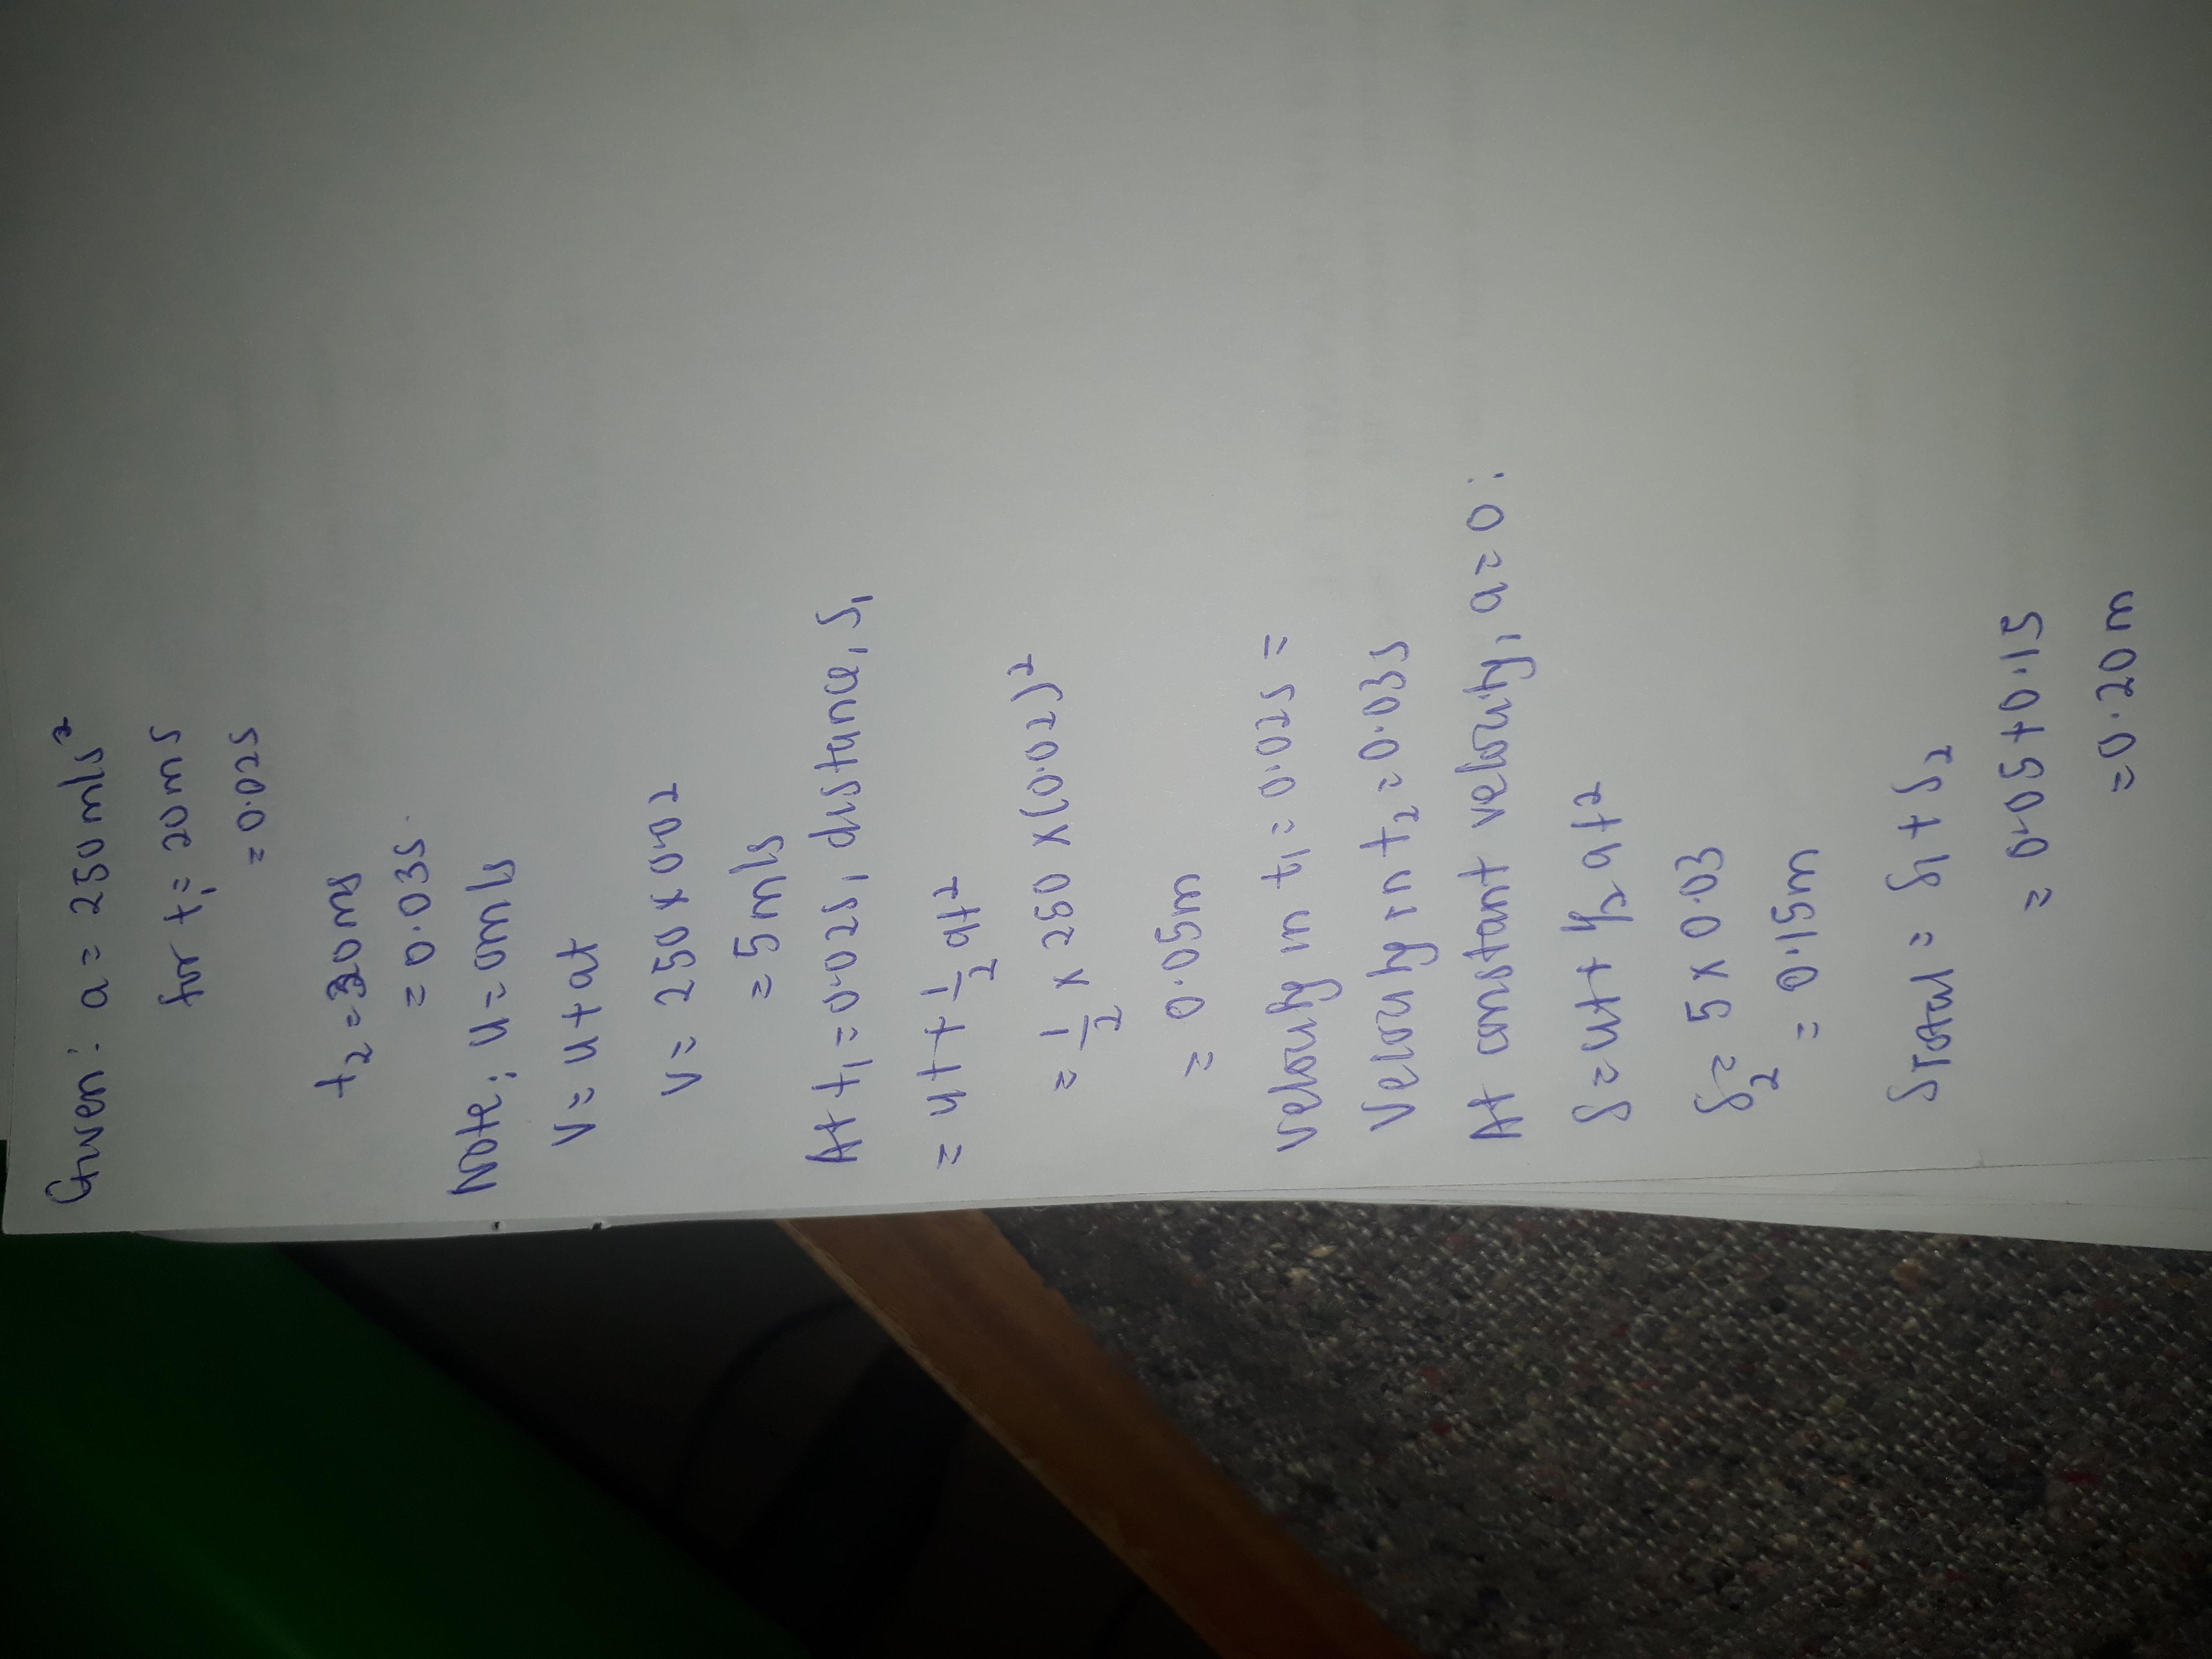 Given: a = 250 m/s²
for t₁ = 20 ms
= 0.02s
t₂ = 30ms
= 0.03s.
Note: u = 0m/s
V = u + at
V = 250 x 0.02
= 5 m/s
At t₁ = 0.02s, distance, S₁
= ut + ½ at²
= ½ x 250 x (0.02)²
= 0.05m
Velocity in t₁ = 0.02s =
Velocity in t₂ = 0.03s
At constant velocity, a = 0:
S = ut + ½ at²
S₂ = 5 x 0.03
= 0.15m
STotal = S₁ + S₂
= 0.05 + 0.15
= 0.20 m